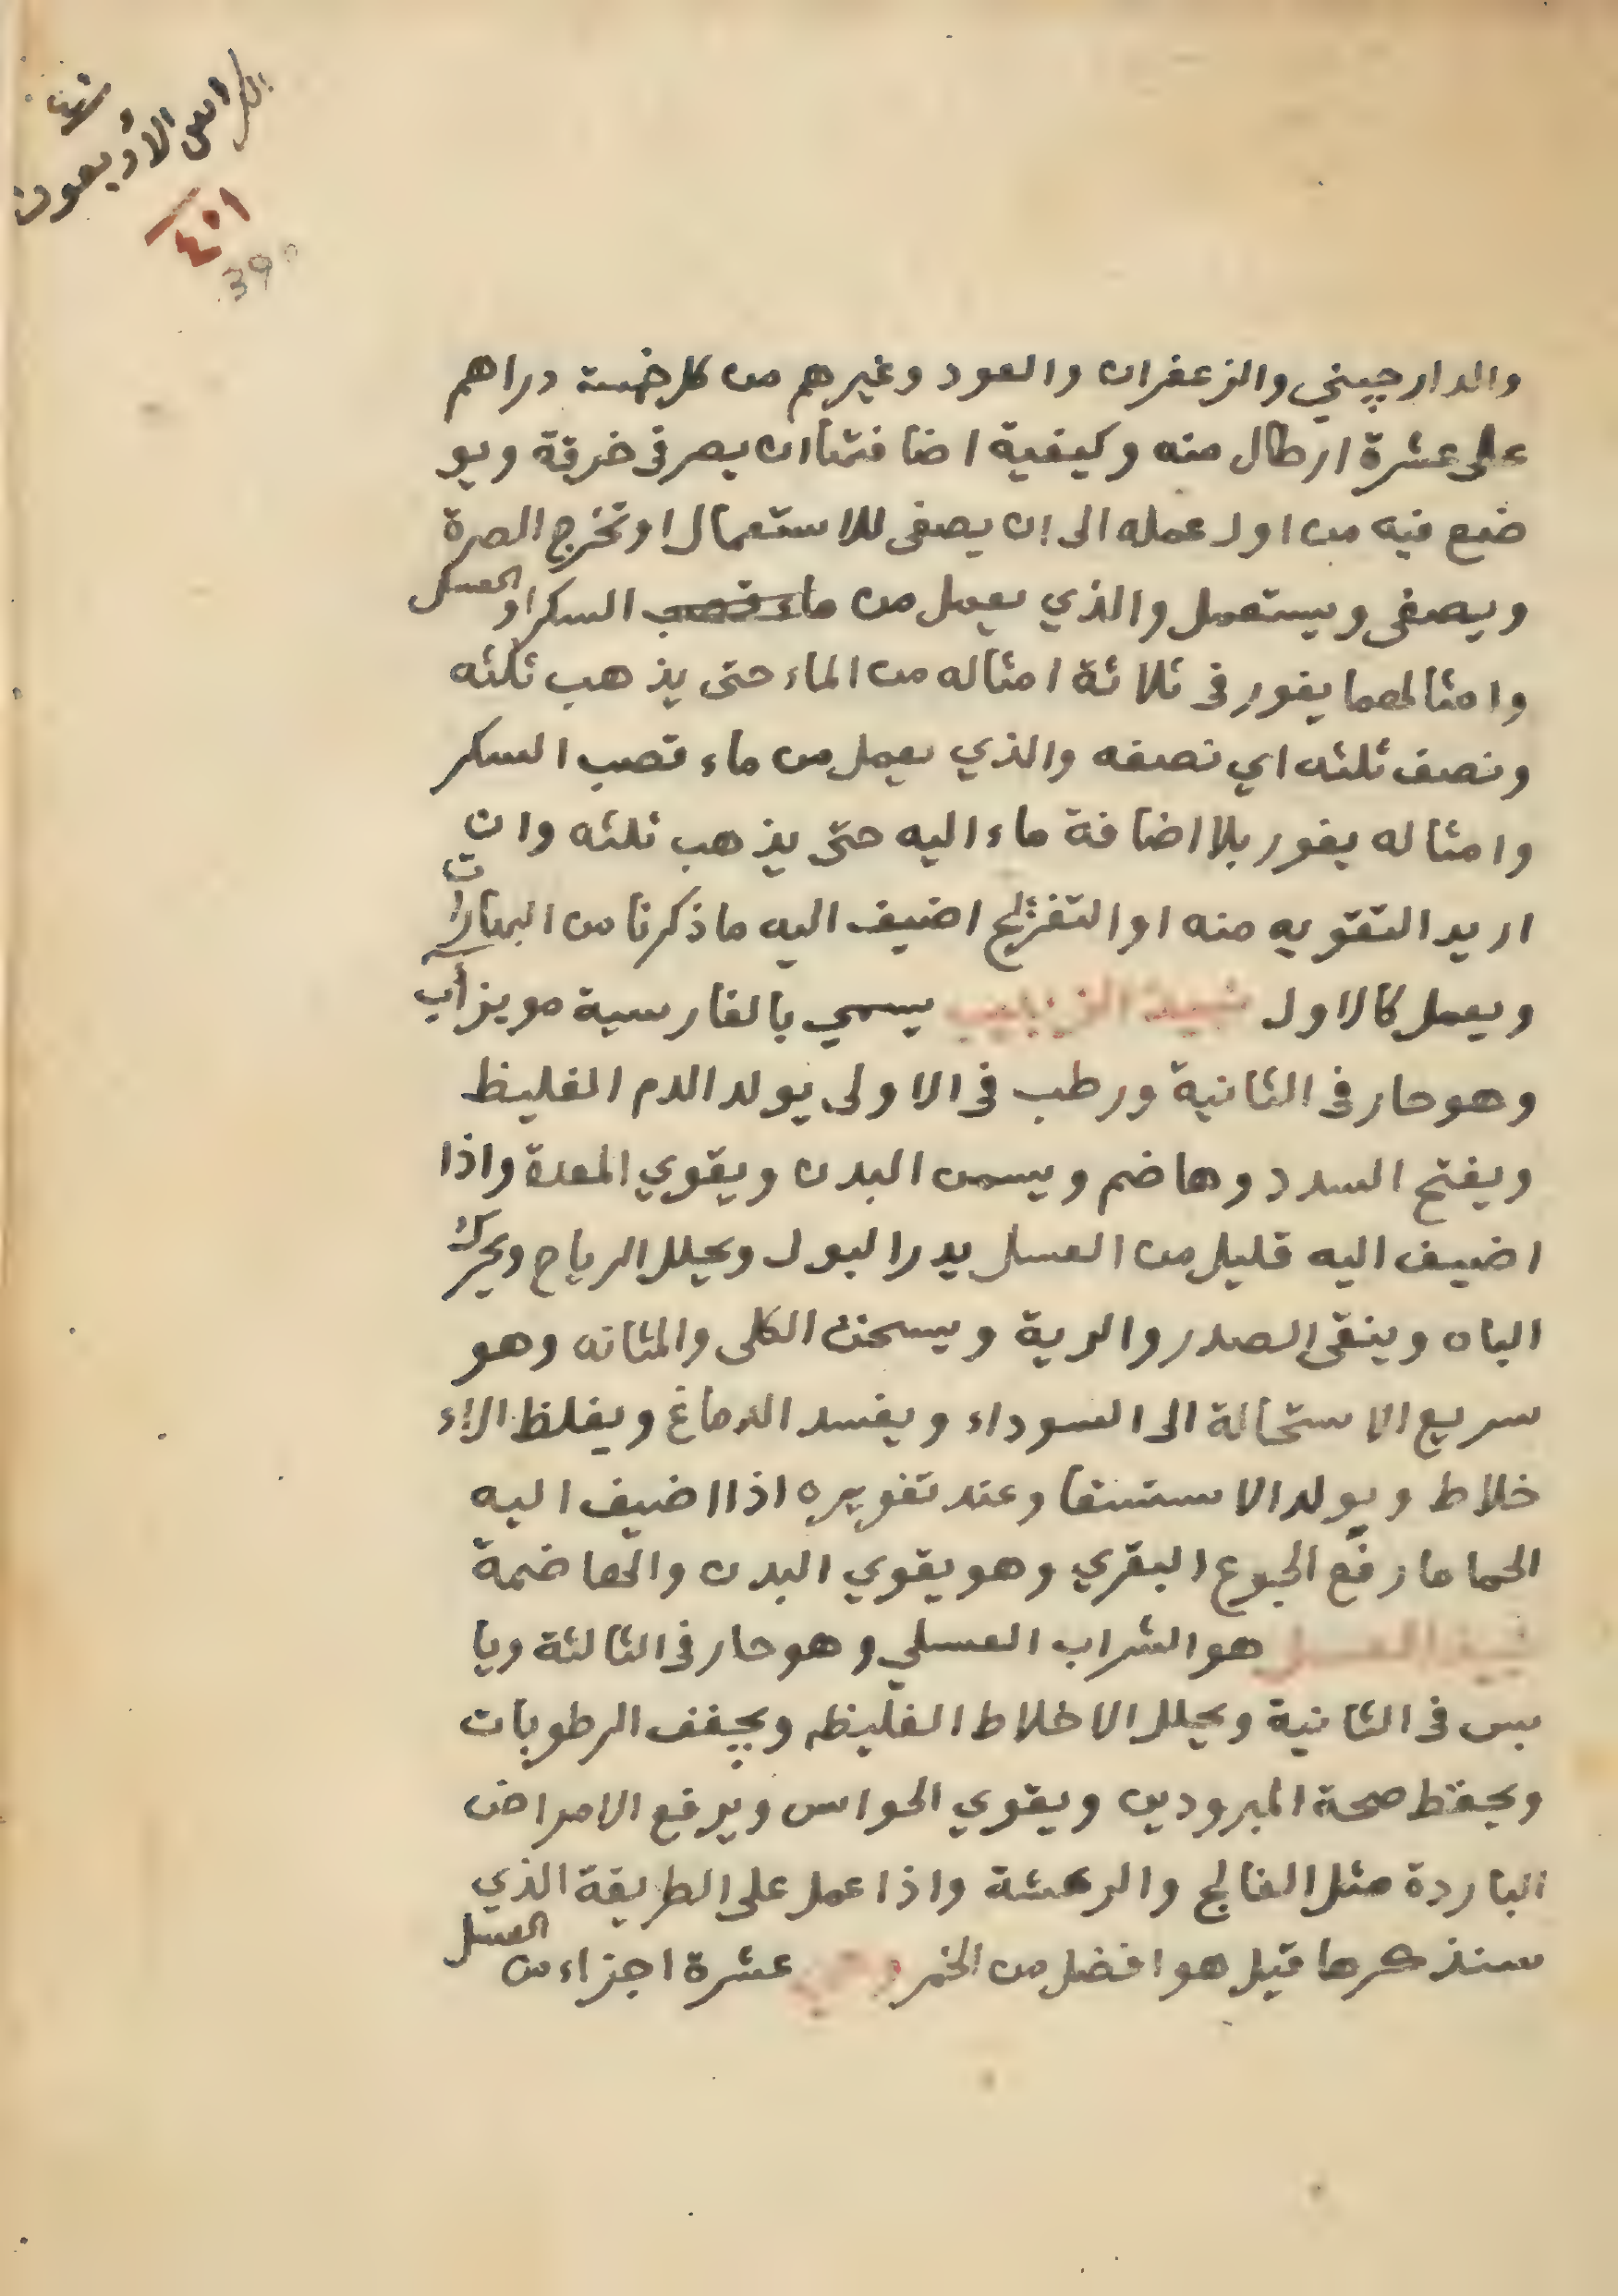 الكراس الأربعون
٤٠١
390
والدارچيني والزعفران والعود وغيرهم من كل خمسة دراهم
على عشرة ارطال منه وكيفية اضافتها ان يصر فى خرقة ويو
ضع فيه من اول عمله الى ان يصفى للاستعمال او تخرج الصرة
ويصفى ويستعمل والذي يعمل من ماء قصب السكر او العسل
وامثالهما يفور فى ثلاثة امثاله من الماء حتى يذهب ثلثه
ونصف ثلثه اي نصفه والذي يعمل من ماء قصب السكر
وامثاله يفور بلا اضافة ماء اليه حتى يذهب ثلثه وان
اريد التقويه منه او التفريح اضيف اليه ما ذكرنا من البهارات
ويعمل كالاول نبيذ الزبيب يسمي بالفارسية مويز آب
وهو حار فى الثانية ورطب فى الاولى يولد الدم الغليظ
ويفتح السدد وهاضم ويسمن البدن ويقوي المعدة واذا
اضيف اليه قليل من العسل يدر البول ويحلل الرياح ويحرك
الباه وينقى الصدر والرية ويسخن الكلى والمثانه وهو
سريع الاستحالة الى السوداء ويفسد الدماغ ويغلظ الاء
خلاط ويولد الاستسقا وعند تفويره اذا اضيف اليه
الحماما رفع الجوع البقري وهو يقوي البدن والهاضمة
نبيذ العسل هو الشراب العسلي وهو حار فى الثالثة ويا
بس فى الثانية ويحلل الاخلاط الغليظه ويجفف الرطوبات
ويحفظ صحة المبرودين ويقوي الحواس ويرفع الامراض
الباردة مثل الفالج والرعشة واذا عمل على الطريقة الذي
سنذكرها قيل هو افضل من الخمر عشرة اجزاء من العسل